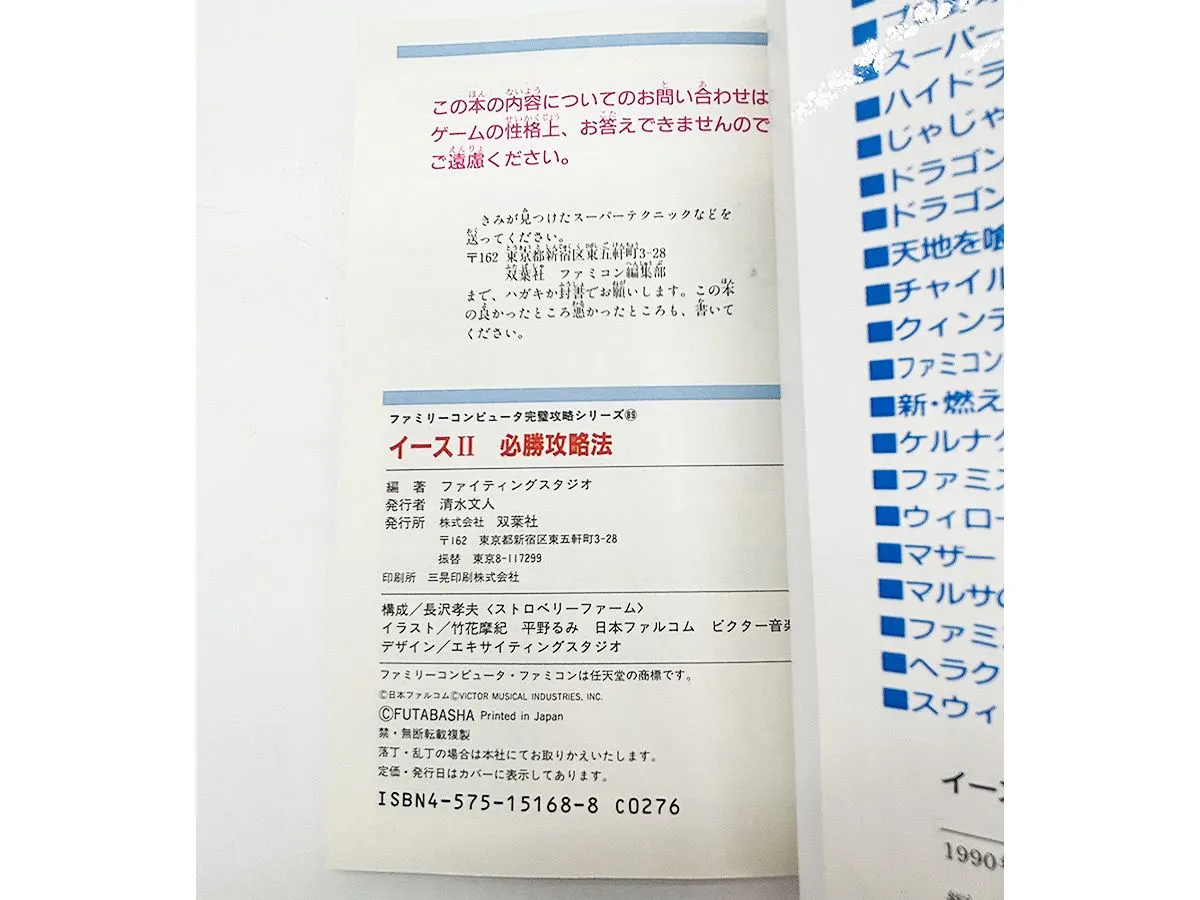 この本の内容についてのお問い合わせは
ゲームの性格上、お答えできませんので
ご遠慮ください。
きみが見つけたスーパーテクニックなどを
送ってください。
〒162 東京都新宿区東五軒町3-28
双葉社 ファミコン編集部
まで、ハガキか封書でお願いします。この本
の良かったところ悪かったところも、書いて
ください。
ファミリーコンピュータ完璧攻略シリーズ89
イースII 必勝攻略法
編 著 ファイティングスタジオ
発行者 清水文人
発行所 株式会社 双葉社
〒162 東京都新宿区東五軒町3-28
振替 東京8-117299
印刷所 三晃印刷株式会社
構成/長沢孝夫〈ストロベリーファーム〉
イラスト/竹花摩紀 平野るみ 日本ファルコム ビクター音楽
デザイン/エキサイティングスタジオ
ファミリーコンピュータ・ファミコンは任天堂の商標です。
©日本ファルコム©VICTOR MUSICAL INDUSTRIES, INC.
©FUTABASHA Printed in Japan
禁・無断転載複製
落丁・乱丁の場合は本社にてお取りかえいたします。
定価・発行日はカバーに表示してあります。
ISBN4-575-15168-8 C0276
■スーパー
■ハイドラ
■じゃじゃ
■ドラゴン
■ドラゴン
■天地を喰
■チャイル
■クィンテ
■ファミコン
■新・燃え
■ケルナグ
■ファミス
■ウィロー
■マザー
■マルサの
■ファミコ
■ヘラク
■スウィ
イース
1990年